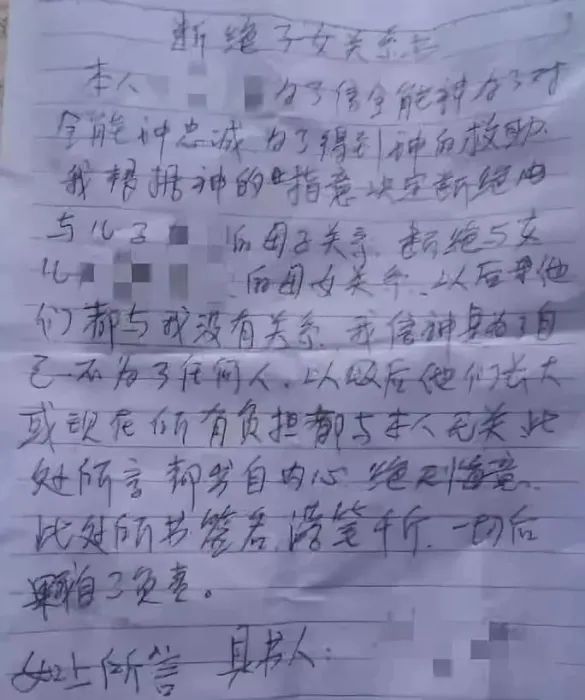 断绝子女关系书
本人 为了信全能神为了对
全能神忠诚为了得到神的救助.
我 据神的指意决定断绝
与儿子 的母子关系.断绝与女
儿 的母女关系.以后 他
们都与我没有关系.我信神是为了自
己不为了任何人.以后他们长大
或现在所有负担都与本人无关.此
处所言都出自内心绝
此处所书签名.落笔千斤.一切后
果自己负责。
如上所言 具书人: